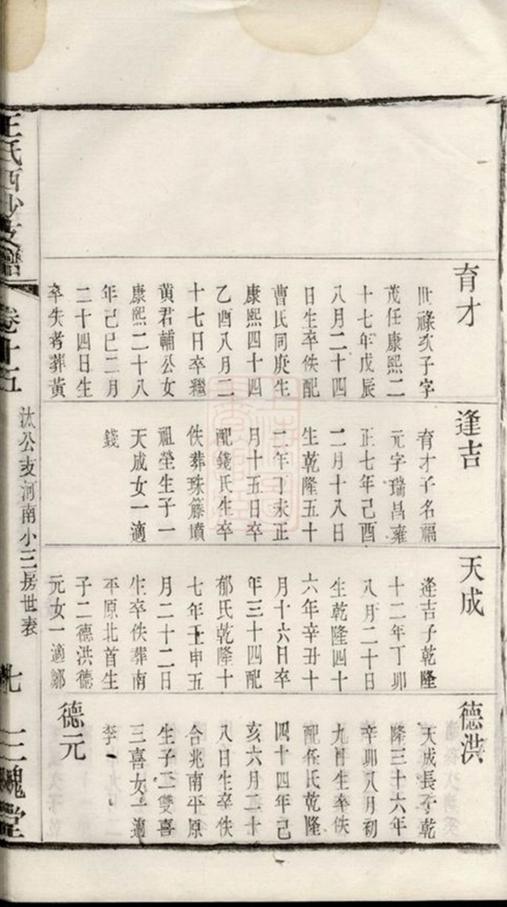 育才
世祿次子字
茂任康熙二
十七年戊辰
八月二十四
日生卒佚配
曹氏同庚生
康熙四十四
乙酉八月二
十七日卒繼
黃君輔公女
康熙二十八
年己巳二月
二十四日生
卒失考葬黃
逢吉
育才子名福
元字瑞昌雍
正七年己酉
二月十八日
生乾隆五十
二年丁未正
月十五日卒
配錢氏生卒
佚葬珠籐墳
祖塋生子一
天成女一適
錢
天成
逢吉子乾隆
十二年丁卯
八月二十日
生乾隆四十
六年辛丑十
月十六日卒
年三十四配
郁氏乾隆十
七年壬申五
月二十二日
生卒佚葬南
平原北首生
子二德洪德
元女一適鄒
德洪
天成長子乾
隆三十六年
辛卯八月初
九日生卒佚
配吞氏乾隆
四十四年己
亥六月二十
八日生卒佚
合兆南平原
生子二雙喜
三喜女一適
李
德元
王氏西沙支譜
卷十五
汰公支河南小三房世表
九
三槐堂